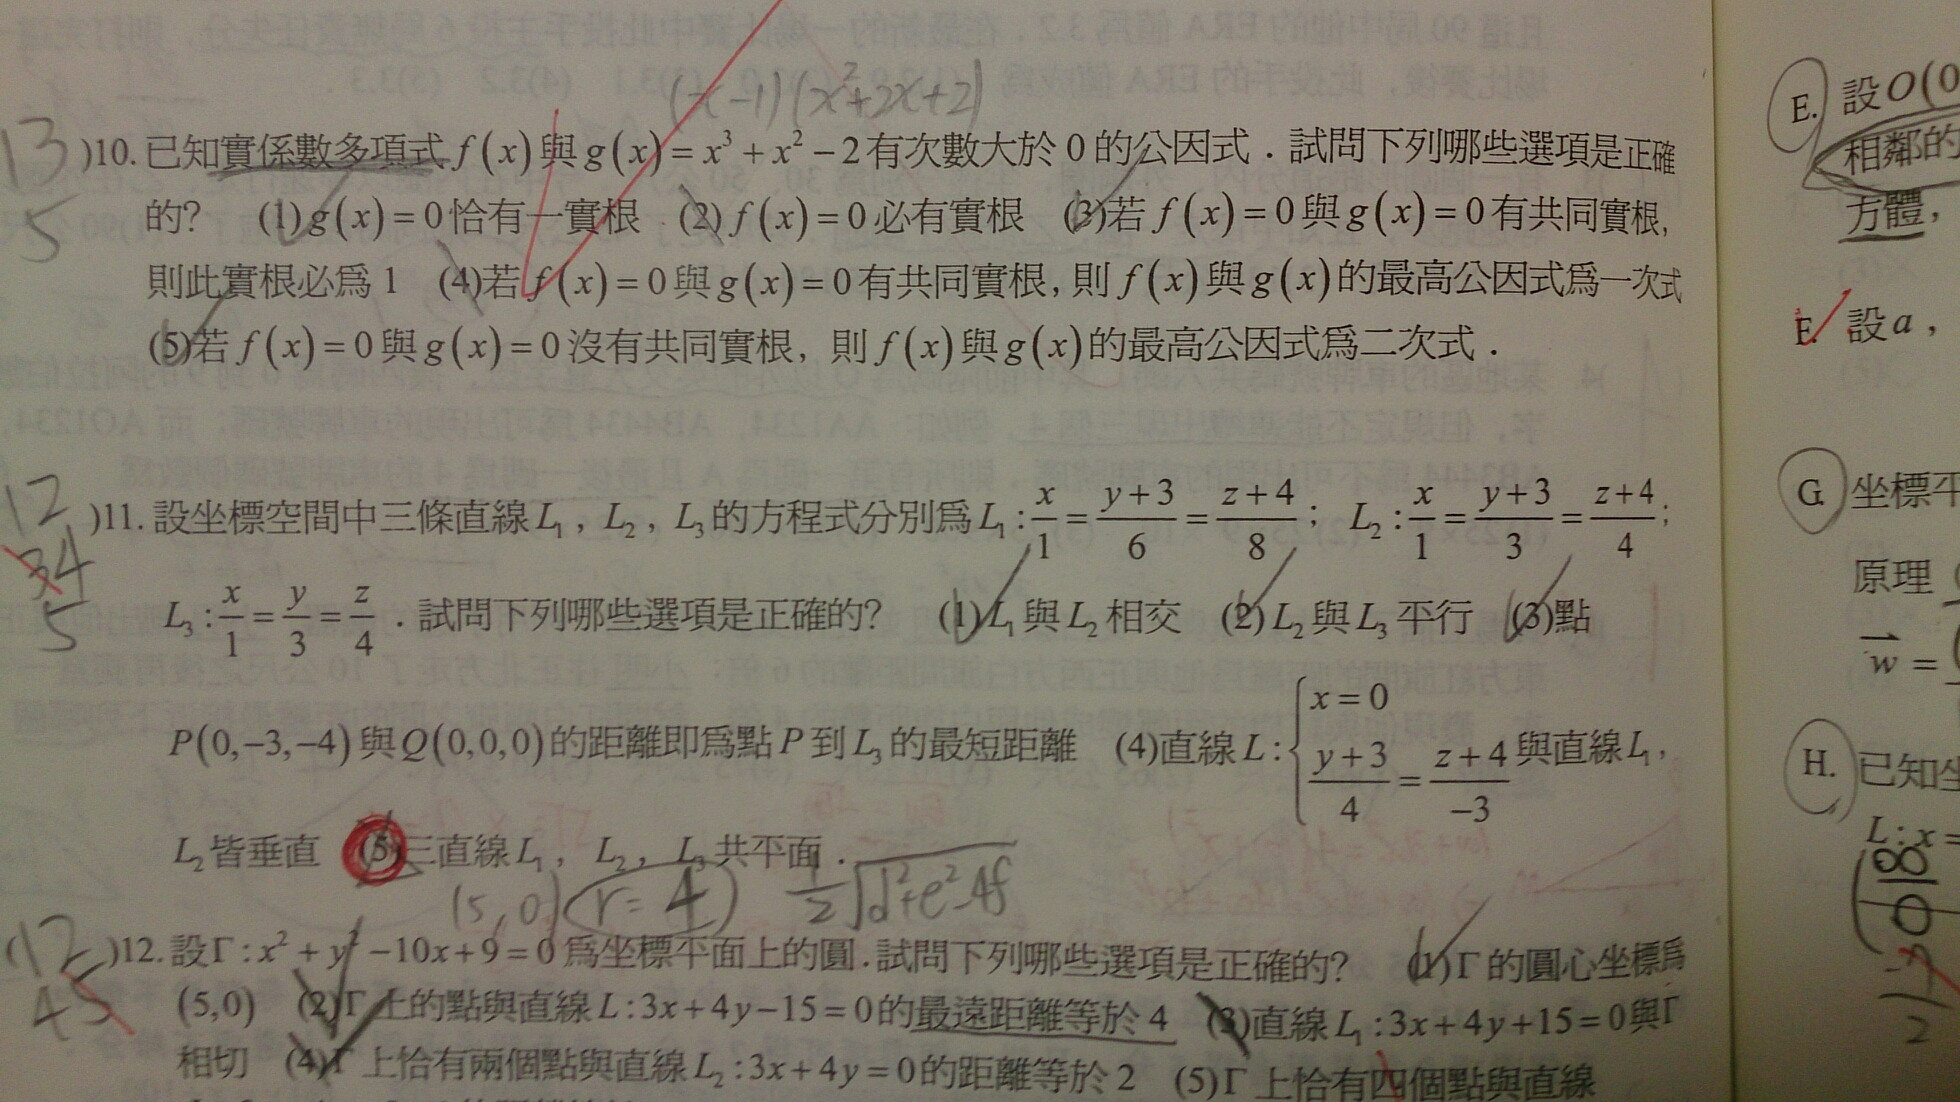 (x-1)(x²+2x+2)
13
5
)10. 已知實係數多項式 f(x) 與 g(x) = x³ + x² − 2 有次數大於 0 的公因式．試問下列哪些選項是正確
的? (1) g(x) = 0 恰有一實根 (2) f(x) = 0 必有實根 (3)若 f(x) = 0 與 g(x) = 0 有共同實根,
則此實根必為 1 (4)若 f(x) = 0 與 g(x) = 0 有共同實根, 則 f(x) 與 g(x) 的最高公因式為一次式
(5)若 f(x) = 0 與 g(x) = 0 沒有共同實根, 則 f(x) 與 g(x) 的最高公因式為二次式．
12
34
5
)11. 設坐標空間中三條直線 L₁, L₂, L₃ 的方程式分別為 L₁ : x/1 = (y+3)/6 = (z+4)/8; L₂ : x/1 = (y+3)/3 = (z+4)/4;
L₃ : x/1 = y/3 = z/4．試問下列哪些選項是正確的? (1) L₁ 與 L₂ 相交 (2) L₂ 與 L₃ 平行 (3)點
P(0,−3,−4) 與 Q(0,0,0) 的距離即為點 P 到 L₃ 的最短距離 (4)直線 L : { x = 0, (y+3)/4 = (z+4)/−3 與直線 L₁,
L₂ 皆垂直 (5)三直線 L₁, L₂, L₃ 共平面．
(5,0) r=4 1/2 √d²+e²-4f
(12
45
)12. 設 Γ : x² + y² −10x + 9 = 0 為坐標平面上的圓．試問下列哪些選項是正確的? (1) Γ 的圓心坐標為
(5,0) (2) Γ 上的點與直線 L : 3x + 4y − 15 = 0 的最遠距離等於 4 (3)直線 L₁ : 3x + 4y + 15 = 0 與 Γ
相切 (4) Γ 上恰有兩個點與直線 L₂ : 3x + 4y = 0 的距離等於 2 (5) Γ 上恰有四個點與直線
E. 設 O(0
相鄰的
方體,
F. 設 a,
G 坐標平
原理
w =
H. 已知坐
L : x =